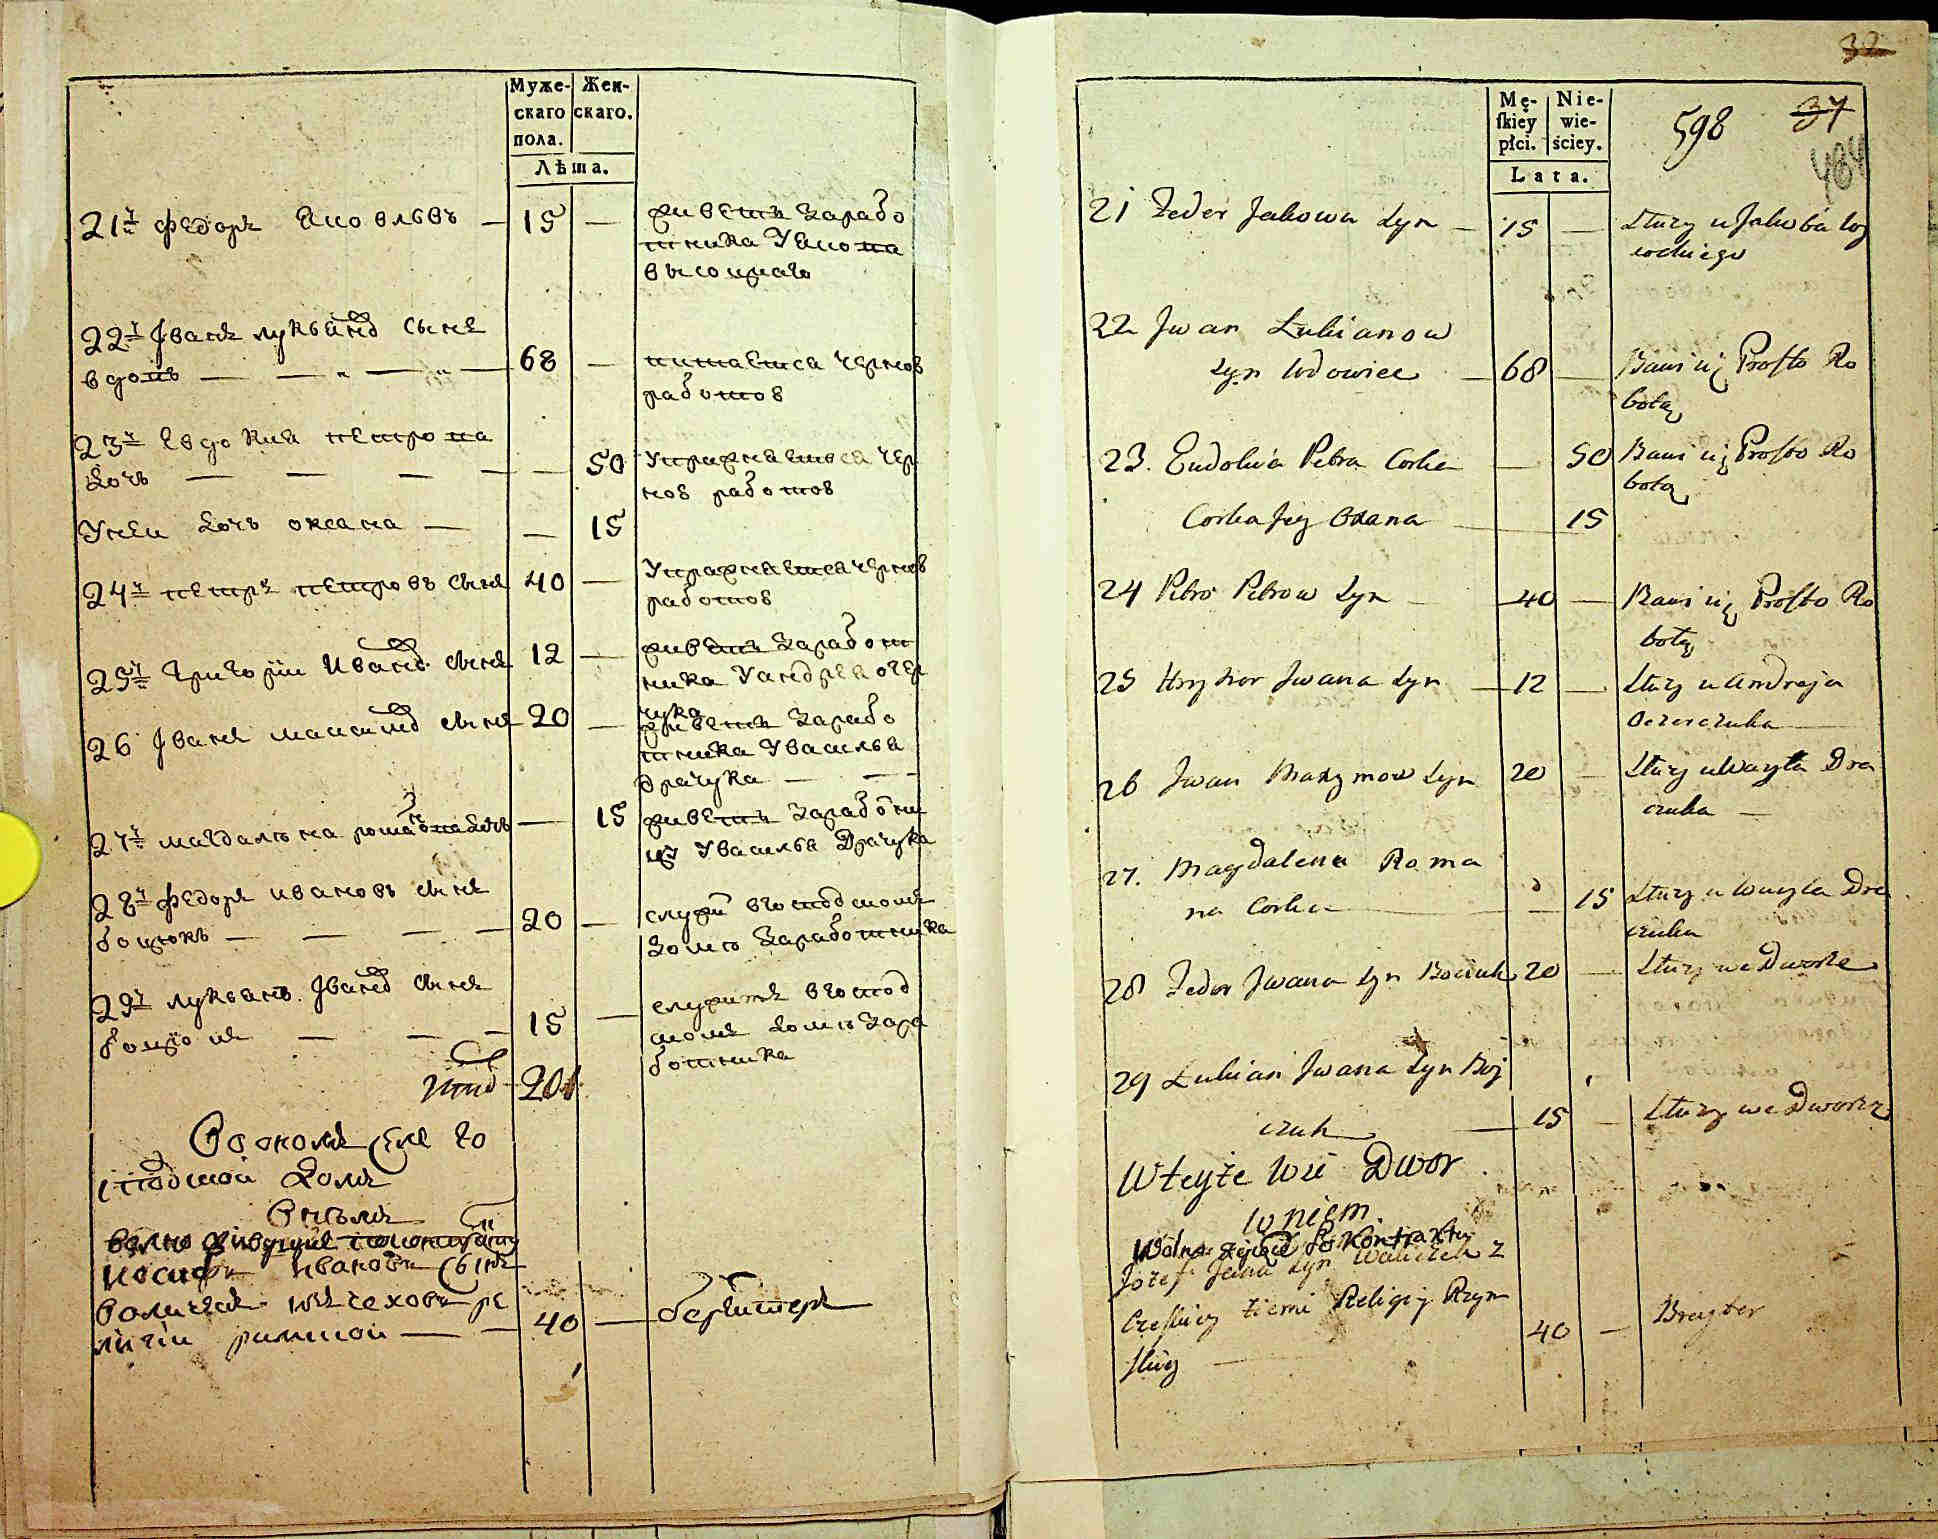 Муже-
скаго
пола.
Жен-
скаго.
Лѣта.
21й Федоръ Яковлѣвъ — 15 —
живетъ зарабо
тника У Якопа
22й Іванъ лукьяновъ сынъ
вдовъ — — — 68 —
питается чернов
работов
23й Евдокия петрова
дочь — — — 50
Упражняется чер
нов работов
Унеи дочь оксана — — 15
24й петръ петровъ сынъ 40 —
Упражняется чернов
работов
25й Григорiи Ивановъ сынъ 12 —
живетъ заработ
ника У андрея очер
чука
26 Іванъ максимовъ сынъ 20 —
живетъ зарабо
тника У василья
драчука — —
27й магдалѣна романова дочь — 15
живетъ заработни
цу У василья Драчука
28й Федоръ ивановъ сынъ
боцюкъ — — — 20 —
служи вгосподскомъ
домѣ заработника
29й лукьянъ Івановъ сынъ
боцюкъ — — — 15 —
служитъ вгоспод
скомъ домѣ зара
ботника
Итого 201
Во ономъ селе го
сподской домъ
Внѣомъ
волно живущие поконтракту
иосифъ ивановъ сынъ
воличекъ изчеховъ ре
лигiи римской — — 40 —
берейтеръ
32
Mę-
skiey
płci.
Nie-
wie-
ściey.
Lata.
598
37
484
21 Fedor Jakowa Syn — 15 —
Służy u Jakoba Wy
sockiego
22 Jwan Łukianow
Syn Wdowiec — 68 —
Bawi się Prosto Ro
botą
23. Eudokia Petra Corka — 50
Bawi się Prosto Ro
botą
Corka Jey Oxana — 15
24 Petro Petrow Syn — 40 —
Bawi się Prosto Ro
botą
25 Hryhor Jwana Syn — 12 —
Służy u Andreja
Oczerczuka —
26 Jwan Maxymow Syn 20 —
Służy u Wasyla Dra
czuka —
27. Magdalena Roma
na Corka — — 15
Służy u Wasyla Dra
czuka
28 Fedor Jwana Syn Bociuk 20 —
Służy we Dworze
29 Łukian Jwana Syn Boj
czuk — 15 —
Służy we Dworze
W teyże Wsi Dwor
w niem
Wolno żyiące Po kontraktu
Jozef Jana Syn Waliczek z
Czeskiey Ziemi Religij Rzym
skiey — 40 —
Breyter